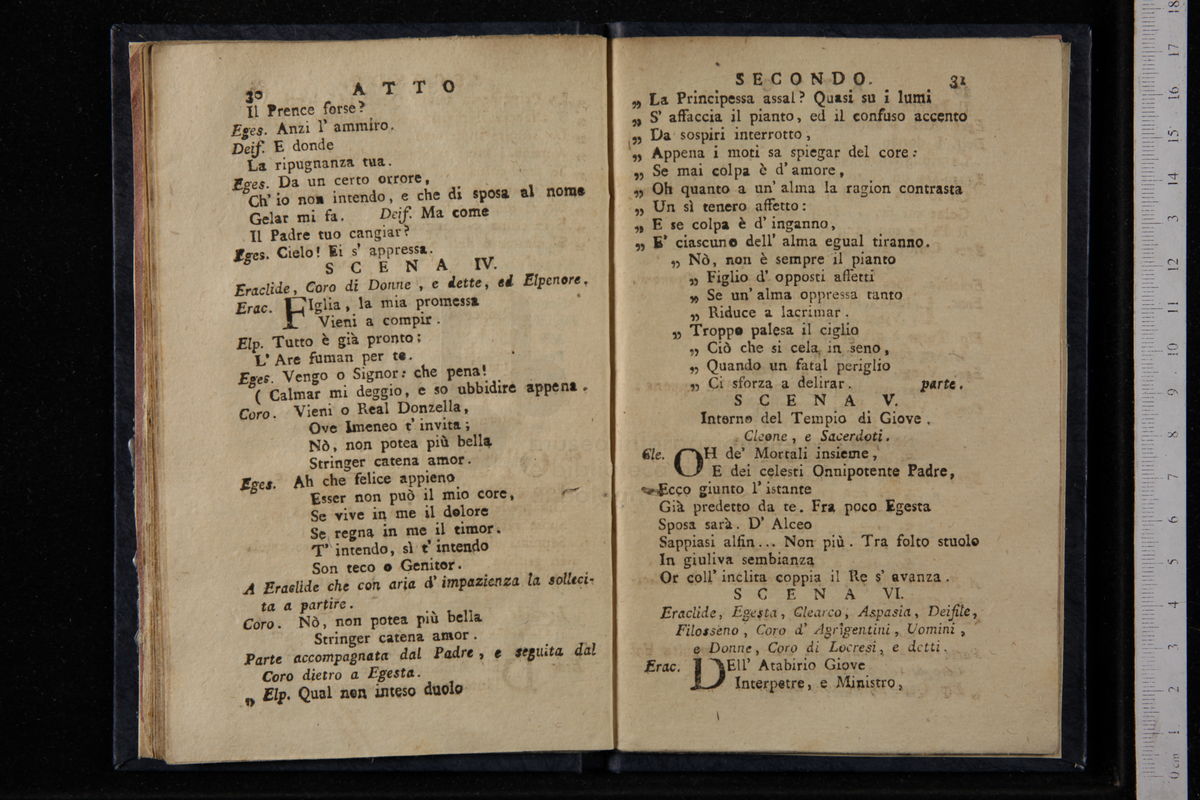 30 ATTO
Il Prence forse?
Eges. Anzi l' ammiro.
Deif. E donde
La ripugnanza tua.
Eges. Da un certo orrore,
Ch' io non intendo, e che di sposa al nome
Gelar mi fa. Deif. Ma come
Il Padre tuo cangiar?
Eges. Cielo! Ei s' appressa.
SCENA IV.
Eraclide, Coro di Donne, e dette, ed Elpenore.
Erac. FIglia, la mia promessa
Vieni a compir.
Elp. Tutto è già pronto:
L' Are fuman per te.
Eges. Vengo o Signor: che pena!
( Calmar mi deggio, e so ubbidire appena.
Coro. Vieni o Real Donzella,
Ove Imeneo t' invita;
Nò, non potea più bella
Stringer catena amor.
Eges. Ah che felice appieno
Esser non può il mio core,
Se vive in me il dolore
Se regna in me il timor.
T' intendo, sì t' intendo
Son teco o Genitor.
A Eraclide che con aria d' impazienza la solleci-
ta a partire.
Coro. Nò, non potea più bella
Stringer catena amor.
Parte accompagnata dal Padre, e seguita dal
Coro dietro a Egesta.
„ Elp. Qual non inteso duolo
SECONDO. 31
„ La Principessa assal? Quasi su i lumi
„ S' affaccia il pianto, ed il confuso accento
„ Da sospiri interrotto,
„ Appena i moti sa spiegar del core:
„ Se mai colpa è d' amore,
„ Oh quanto a un' alma la ragion contrasta
„ Un sì tenero affetto:
„ E se colpa è d' inganno,
„ E' ciascuno dell' alma egual tiranno.
„ Nò, non è sempre il pianto
„ Figlio d' opposti affetti
„ Se un' alma oppressa tanto
„ Riduce a lacrimar.
„ Troppo palesa il ciglio
„ Ciò che si cela in seno,
„ Quando un fatal periglio
„ Ci sforza a delirar. parte.
SCENA V.
Interno del Tempio di Giove.
Cleone, e Sacerdoti.
Cle. OH de' Mortali insieme,
E dei celesti Onnipotente Padre,
Ecco giunto l' istante
Già predetto da te. Fra poco Egesta
Sposa sarà. D' Alceo
Sappiasi alfin... Non più. Tra folto stuolo
In giuliva sembianza
Or coll' inclita coppia il Re s' avanza.
SCENA VI.
Eraclide, Egesta, Clearco, Aspasia, Deifile,
Filosseno, Coro d' Agrigentini, Uomini,
e Donne, Coro di Locresi, e detti.
Erac. DEll' Atabirio Giove
Interpetre, e Ministro,
0 cm 1 2 3 4 5 6 7 8 9 10 11 12 13 14 15 16 17 18